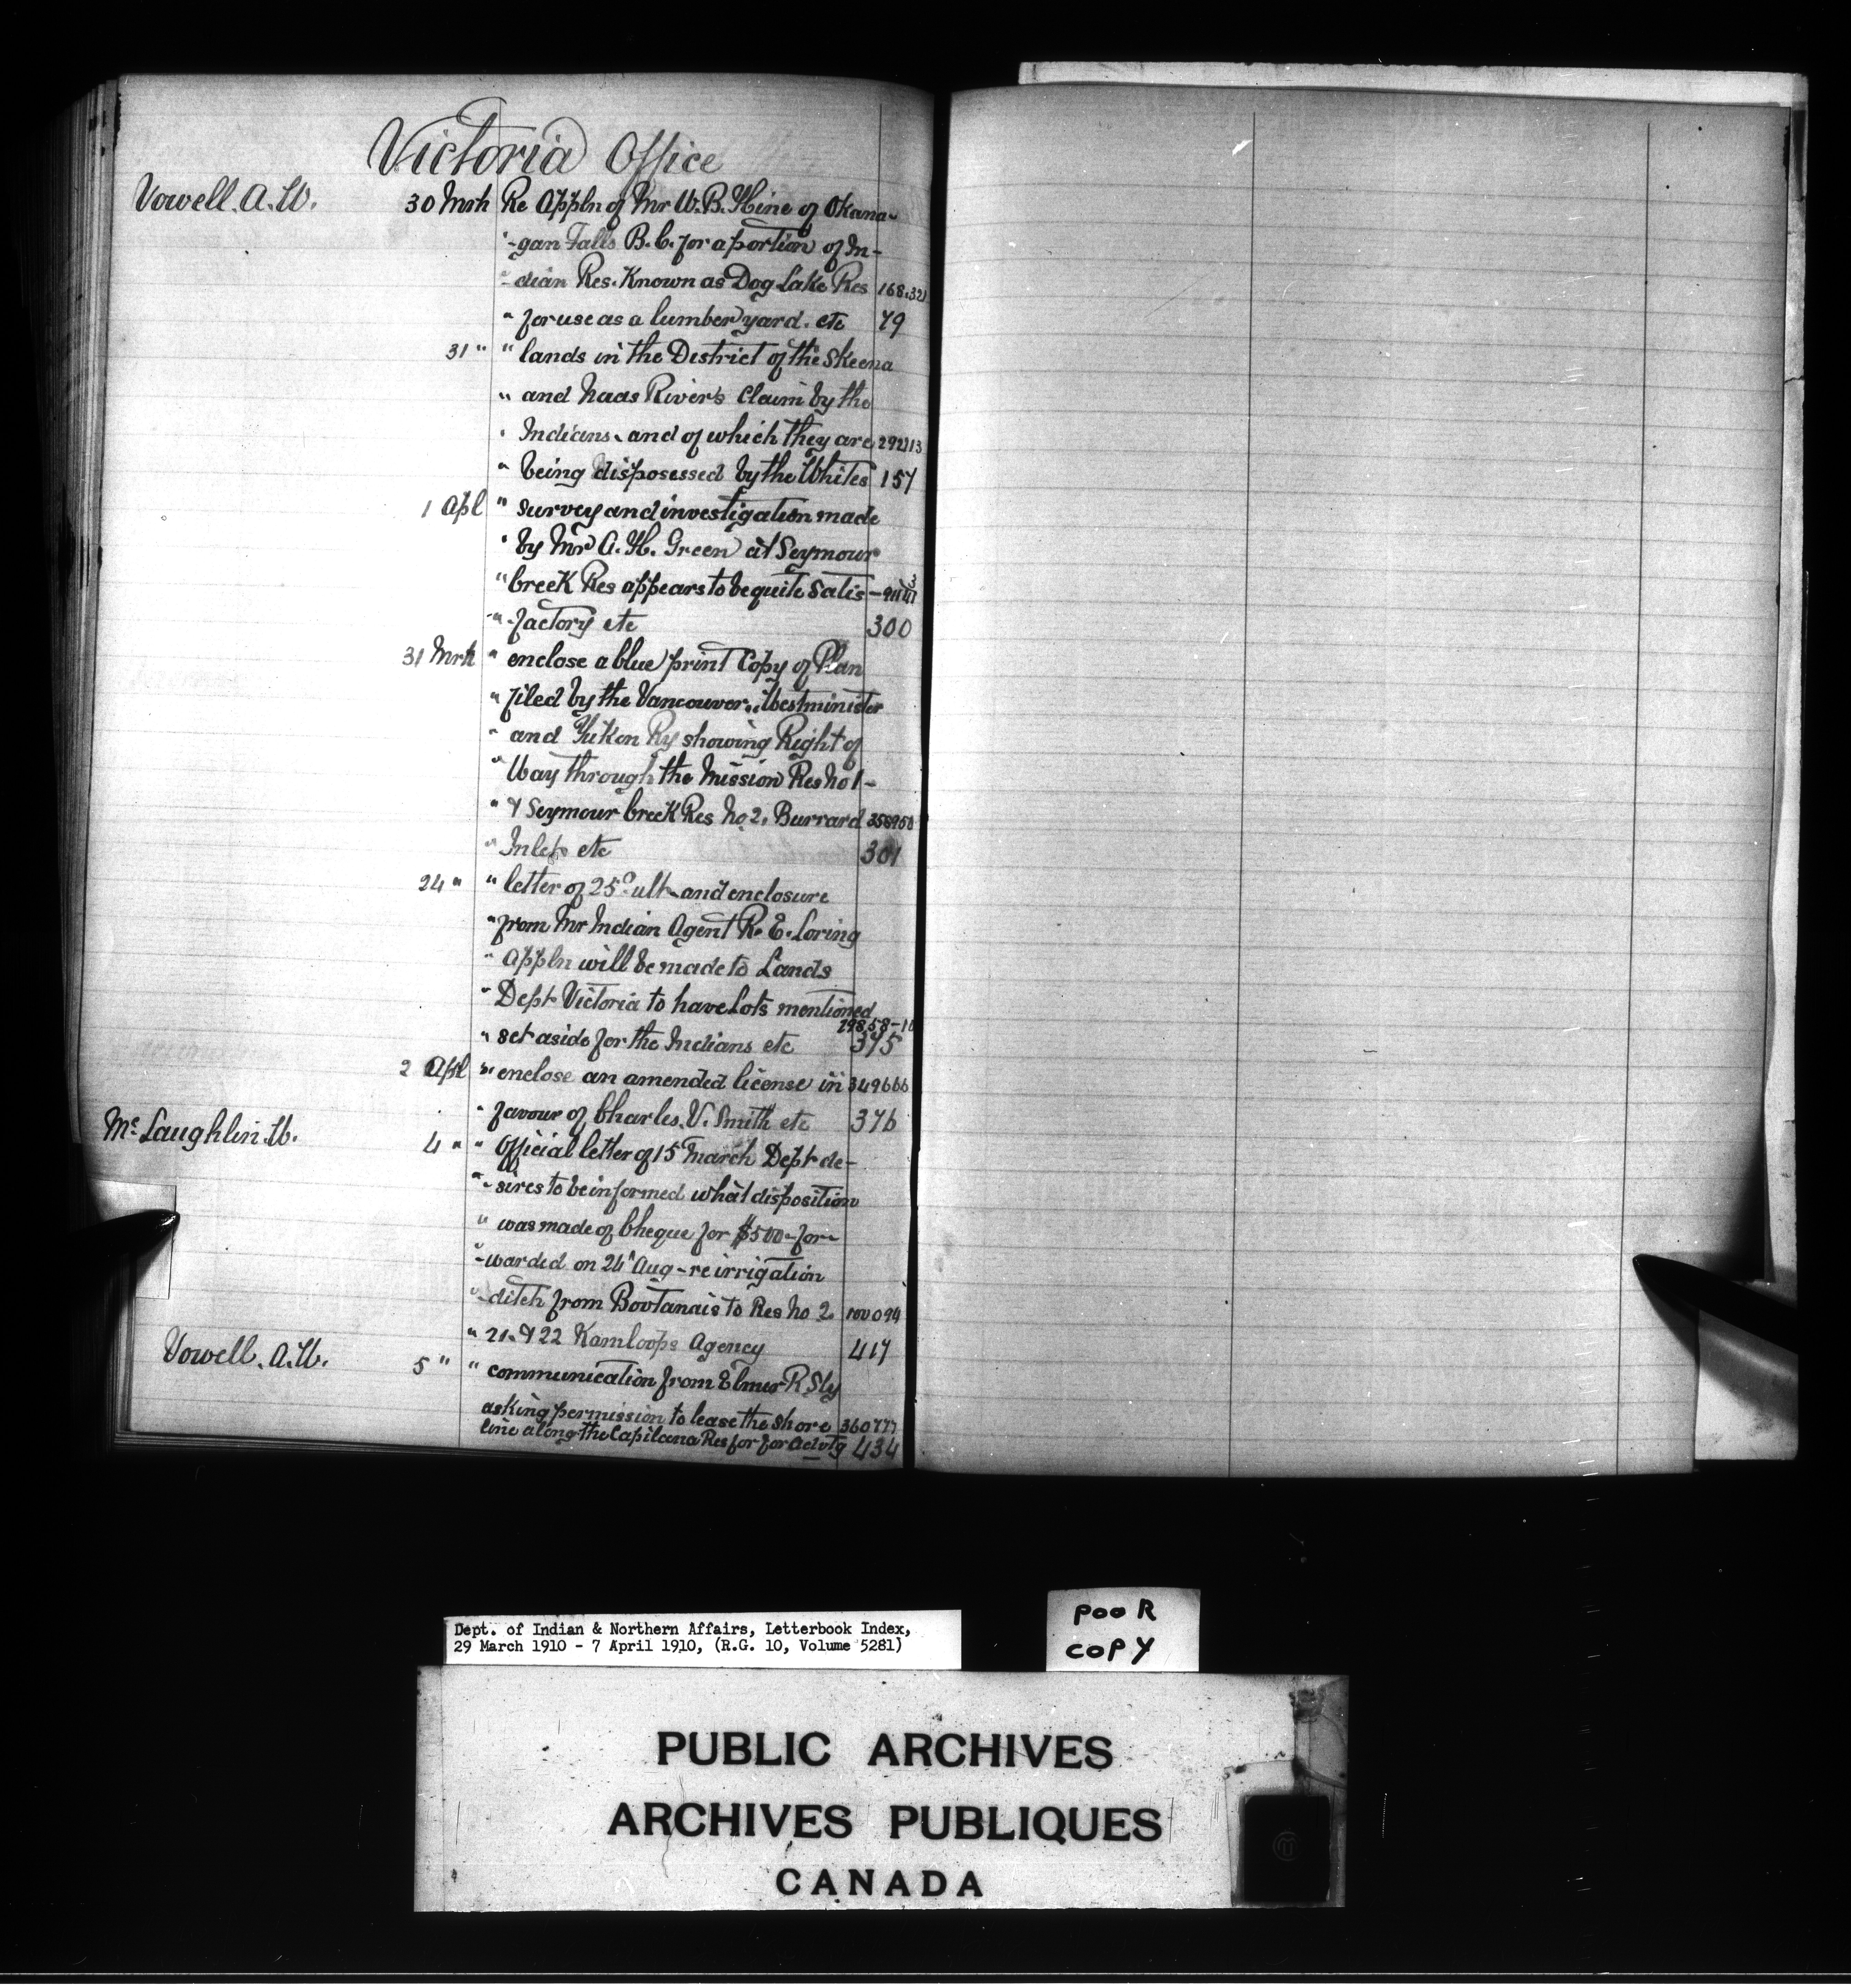 Victoria Office
Vowell. A. W. 30 Mrh Re Appln of Mr W. B. Hine of Okana-
"-gan Falls B. C. for a portion of In-
"-dian Res. Known as Dog Lake Res 168.321
" for use as a lumber yard. etc 79
31 " " lands in the District of the Skeena
" and Naas Rivers Claim by the
" Indians. and of which they are 292113
" being disposessed by the Whites 157
1 Apl " survey and investigation made
" by Mr A. H. Green at Seymour
" Creek Res appears to be quite Satis-
" -factory etc 300
31 Mrh " enclose a blue print Copy of Plan
" filed by the Vancouver, Westminister
" and Yukon Ry showing Right of
" Way through the Mission Res No 1-
" & Seymour Creek Res No 2, Burrard 358950
" Inlet etc 301
24 " " letter of 25 ult. and enclosure
" from Mr Indian Agent R. E. Loring
" Appln will be made to Lands
" Dept Victoria to have Lots mentioned
" set aside for the Indians etc 375
2 Apl " enclose an amended license in 349666
" favour of Charles. V. Smith etc 376
Mc Laughlin. W. 4 " " Official letter of 15 March Dept de-
"-sires to be informed what disposition
" was made of Cheque for $500- for-
"-warded on 24" Aug - re irrigation
" ditch from Bootanais to Res No 2
" 21. & 22 Kamloops Agency 417
Vowell. A. W. 5 " " communication from Elmer R Sly
asking permission to lease the shore 360777
line along the Capilano Res for for Advtg 434
Dept. of Indian & Northern Affairs, Letterbook Index,
29 March 1910 - 7 April 1910, (R.G. 10, Volume 5281)
POOR
COPY
PUBLIC ARCHIVES
ARCHIVES PUBLIQUES
CANADA